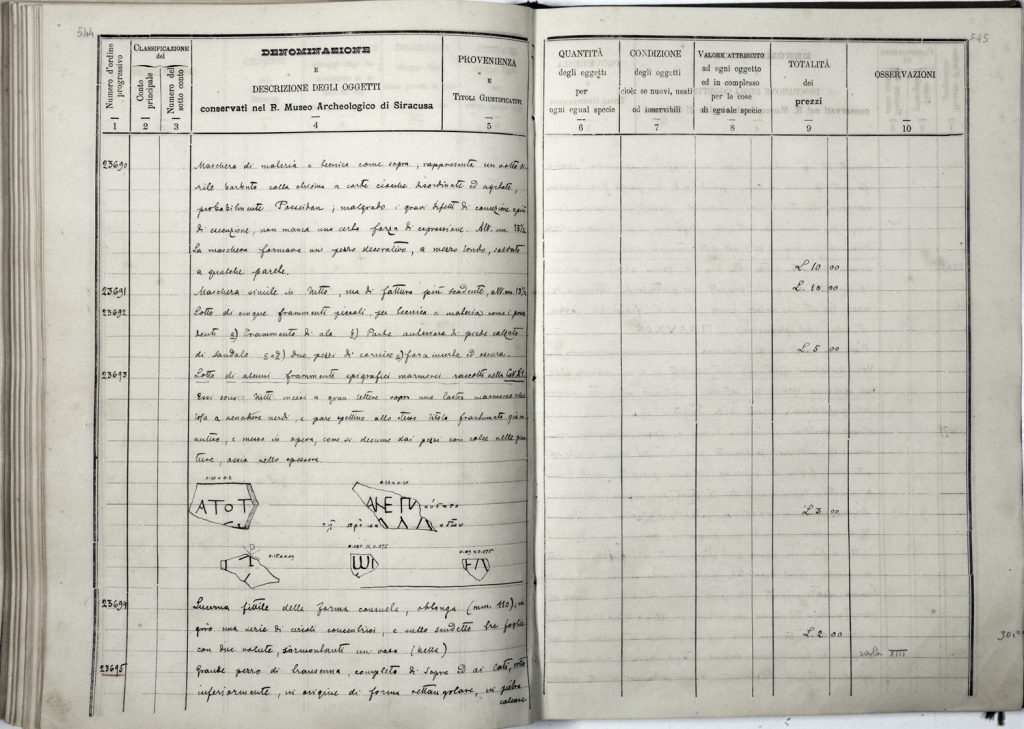 544
Numero d'ordine progressivo
CLASSIFICAZIONE
del
Conto principale
Numero del sotto conto
DENOMINAZIONE
E
DESCRIZIONE DEGLI OGGETTI
conservati nel R. Museo Archeologico di Siracusa
PROVENIENZA
E
TITOLI GIUSTIFICATIVI
1 2 3 4 5
23690 Maschera di materia e tecnica come sopra, rappresenta un volto vi-
rile barbuto colla chioma a corte ciocche disordinate ed agitate,
probabilmente Poseidon; malgrado i gravi difetti di concezione e più
di esecuzione, non manca una certa forza di espressione. Alt. cm. 13½
La maschera formava un pezzo decorativo, a mezzo tondo,
a qualche parete.
23691 Maschera simile in tutto, ma di fattura più scadente, alt. cm. 13½
23692 Lotto di cinque frammenti piccoli, per tecnica e materia come i prece-
denti a) Frammento di ala b) Parte anteriore di piede calzato
di sandalo c e d) due pezzi di cornice e) forse incerta ed oscura.
23693 Lotto di alcuni frammenti epigrafici marmorei raccolti nella
Essi sono tutti incisi a gran lettere sopra una lastra marmorea
a venature verdi, e pare spettino allo stesso titolo frantumato già in
antico, e messo in opera, come si desume dai pezzi con calce nelle
ture, ossia nello spessore.
ΑΤΟΤ
0.15 x 0.09
23694 Lucerna fittile della forma consueta, oblonga (mm. 110), in
giro una serie di circoli concentrici, e sullo scudetto tre foglie
con due volute, sormontanti un vaso
23695 Grande pezzo di transenna, completo di sopra ed ai lati, rotto
inferiormente, in origine di forma rettangolare, in pietra
calcare
545
QUANTITÀ
degli oggetti
per
ogni egual specie
CONDIZIONE
degli oggetti
cioè: se nuovi, usati
od inservibili
VALORE ATTRIBUITO
ad ogni oggetto
ed in complesso
per le cose
di eguale specie
TOTALITÀ
dei
prezzi
OSSERVAZIONI
6 7 8 9 10
L. 10 00
L. 10 00
L. 5 00
L. 3 00
L. 2 00
XIII